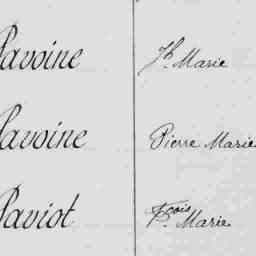 Pavoine Jh. Marie
Pavoine Pierre Marie
Paviot Fçois Marie